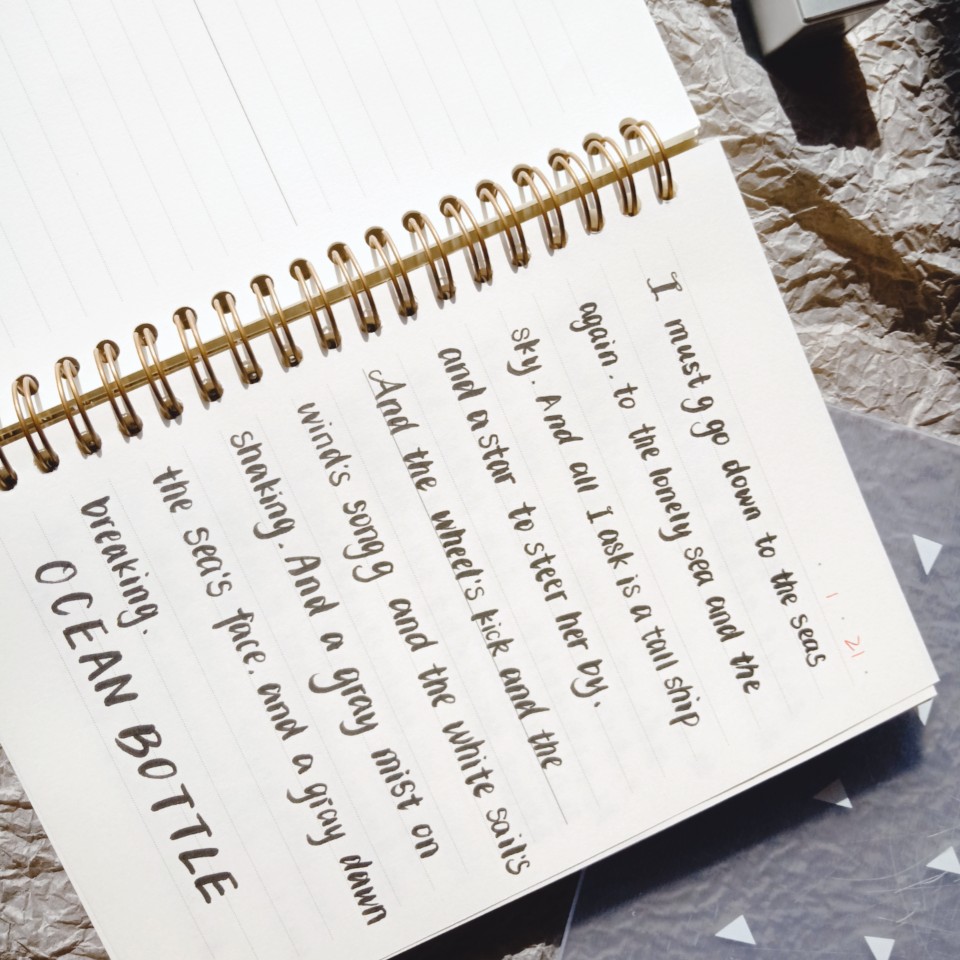 1. 21.
I must g go down to the seas
again. to the lonely sea and the
sky. And all I ask is a tall ship
and a star to steer her by.
And the wheel's kick and the
wind's song and the white sail's
shaking. And a gray mist on
the sea's face. and a gray dawn
breaking.
OCEAN BOTTLE